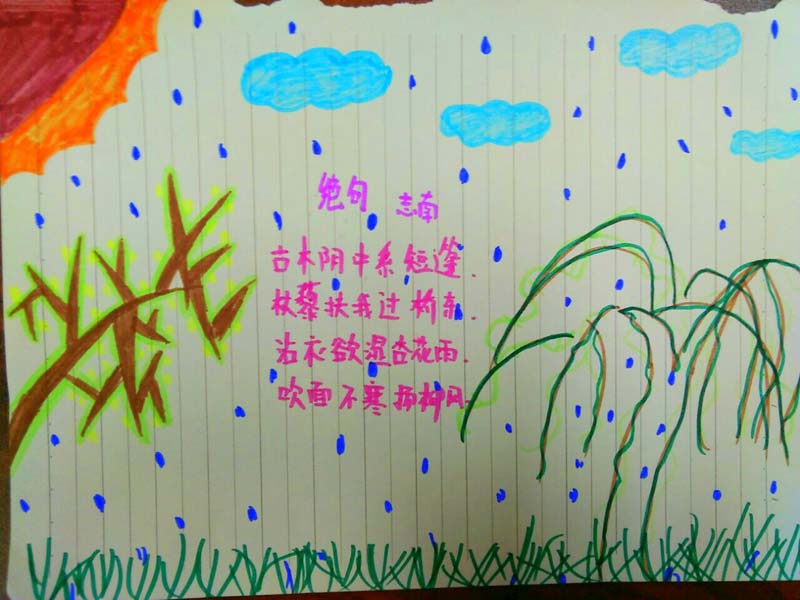 绝句 志南
古木阴中系短篷.
杖藜扶我过桥东.
沾衣欲湿杏花雨.
吹面不寒杨柳风.